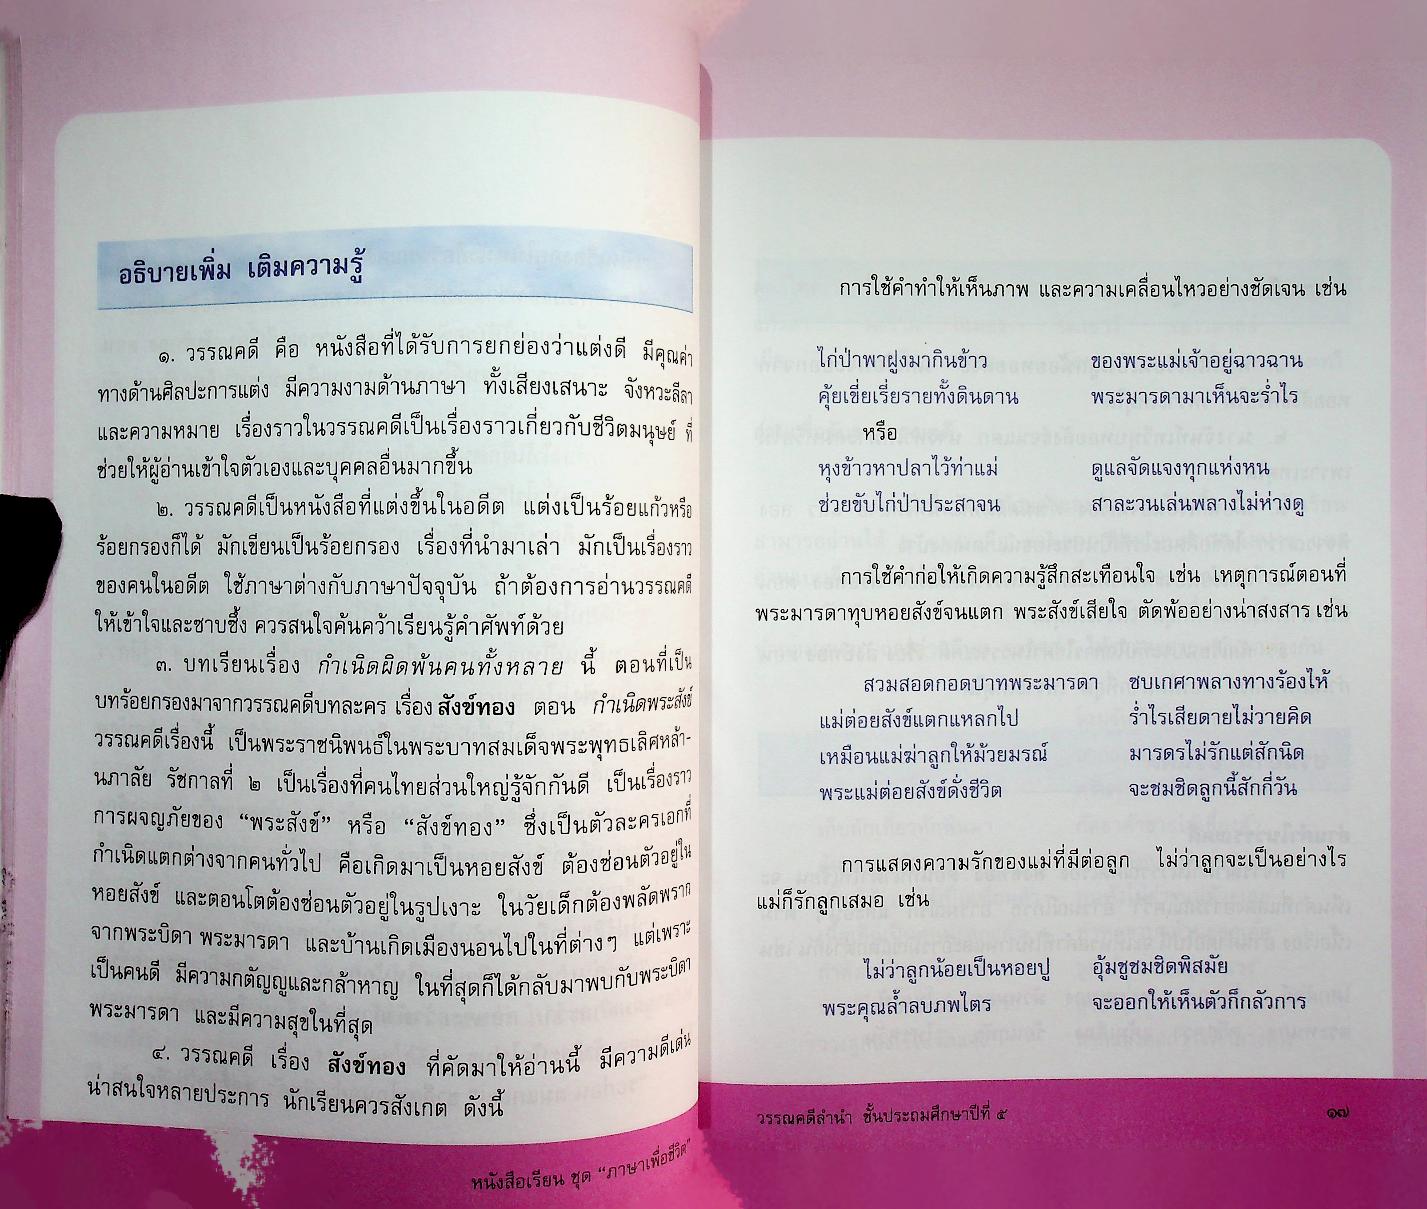 อธิบายเพิ่ม เติมความรู้
๑. วรรณคดี คือ หนังสือที่ได้รับการยกย่องว่าแต่งดี มีคุณค่า
ทางด้านศิลปะการแต่ง มีความงามด้านภาษา ทั้งเสียงเสนาะ จังหวะลีลา
และความหมาย เรื่องราวในวรรณคดีเป็นเรื่องราวเกี่ยวกับชีวิตมนุษย์ ที่
ช่วยให้ผู้อ่านเข้าใจตัวเองและบุคคลอื่นมากขึ้น
๒. วรรณคดีเป็นหนังสือที่แต่งขึ้นในอดีต แต่งเป็นร้อยแก้วหรือ
ร้อยกรองก็ได้ มักเขียนเป็นร้อยกรอง เรื่องที่นำมาเล่า มักเป็นเรื่องราว
ของคนในอดีต ใช้ภาษาต่างกับภาษาปัจจุบัน ถ้าต้องการอ่านวรรณคดี
ให้เข้าใจและซาบซึ้ง ควรสนใจค้นคว้าเรียนรู้คำศัพท์ด้วย
๓. บทเรียนเรื่อง กำเนิดผิดพ้นคนทั้งหลาย นี้ ตอนที่เป็น
บทร้อยกรองมาจากวรรณคดีบทละคร เรื่อง สังข์ทอง ตอน กำเนิดพระสังข์
วรรณคดีเรื่องนี้ เป็นพระราชนิพนธ์ในพระบาทสมเด็จพระพุทธเลิศหล้า-
นภาลัย รัชกาลที่ ๒ เป็นเรื่องที่คนไทยส่วนใหญ่รู้จักกันดี เป็นเรื่องราว
การผจญภัยของ "พระสังข์" หรือ "สังข์ทอง" ซึ่งเป็นตัวละครเอกที่
กำเนิดแตกต่างจากคนทั่วไป คือเกิดมาเป็นหอยสังข์ ต้องซ่อนตัวอยู่ใน
หอยสังข์ และตอนโตต้องซ่อนตัวอยู่ในรูปเงาะ ในวัยเด็กต้องพลัดพราก
จากพระบิดา พระมารดา และบ้านเกิดเมืองนอนไปในที่ต่างๆ แต่เพราะ
เป็นคนดี มีความกตัญญูและกล้าหาญ ในที่สุดก็ได้กลับมาพบกับพระบิดา
พระมารดา และมีความสุขในที่สุด
๔. วรรณคดี เรื่อง สังข์ทอง ที่คัดมาให้อ่านนี้ มีความดีเด่น
น่าสนใจหลายประการ นักเรียนควรสังเกต ดังนี้
หนังสือเรียน ชุด "ภาษาเพื่อชีวิต"
การใช้คำทำให้เห็นภาพ และความเคลื่อนไหวอย่างชัดเจน เช่น
ไก่ป่าพาฝูงมากินข้าว ของพระแม่เจ้าอยู่ฉาวฉาน
คุ้ยเขี่ยเรี่ยรายทั้งดินดาน พระมารดามาเห็นจะร่ำไร
หรือ
หุงข้าวหาปลาไว้ท่าแม่ ดูแลจัดแจงทุกแห่งหน
ช่วยขับไก่ป่าประสาจน สาละวนเล่นพลางไม่ห่างดู
การใช้คำก่อให้เกิดความรู้สึกสะเทือนใจ เช่น เหตุการณ์ตอนที่
พระมารดาทุบหอยสังข์จนแตก พระสังข์เสียใจ ตัดพ้ออย่างน่าสงสาร เช่น
สวมสอดกอดบาทพระมารดา ซบเกศาพลางทางร้องไห้
แม่ต่อยสังข์แตกแหลกไป ร่ำไรเสียดายไม่วายคิด
เหมือนแม่ฆ่าลูกให้ม้วยมรณ์ มารดรไม่รักแต่สักนิด
พระแม่ต่อยสังข์ดั่งชีวิต จะชมชิดลูกนี้สักกี่วัน
การแสดงความรักของแม่ที่มีต่อลูก ไม่ว่าลูกจะเป็นอย่างไร
แม่ก็รักลูกเสมอ เช่น
ไม่ว่าลูกน้อยเป็นหอยปู อุ้มชูชมชิดพิสมัย
พระคุณล้ำลบภพไตร จะออกให้เห็นตัวก็กลัวการ
วรรณคดีลำนำ ชั้นประถมศึกษาปีที่ ๕ ๑๗